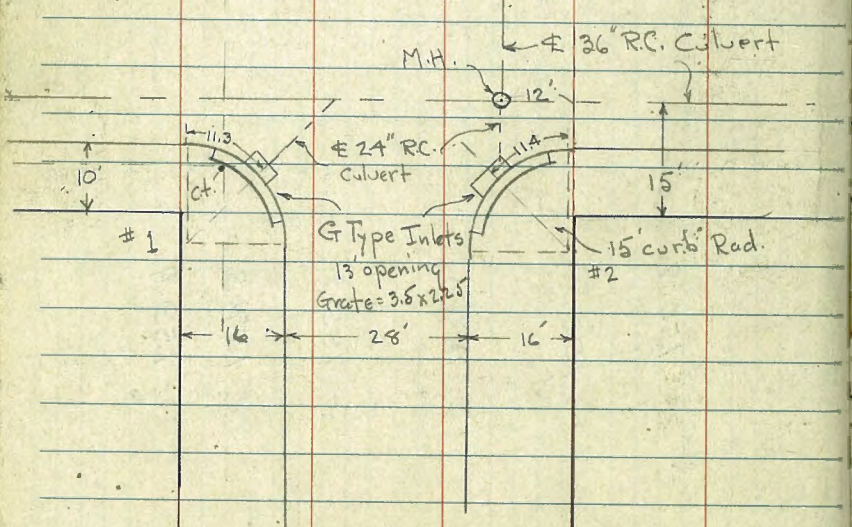 ℄ 36" R.C. Culvert
M.H.
12'
11.3
℄ 24" R.C.
Culvert
11.4
10'
15'
Ct.
#1
G Type Inlets
13' opening
Grate = 3.5 x 2.25
15' curb Rad.
#2
16'
28'
16'